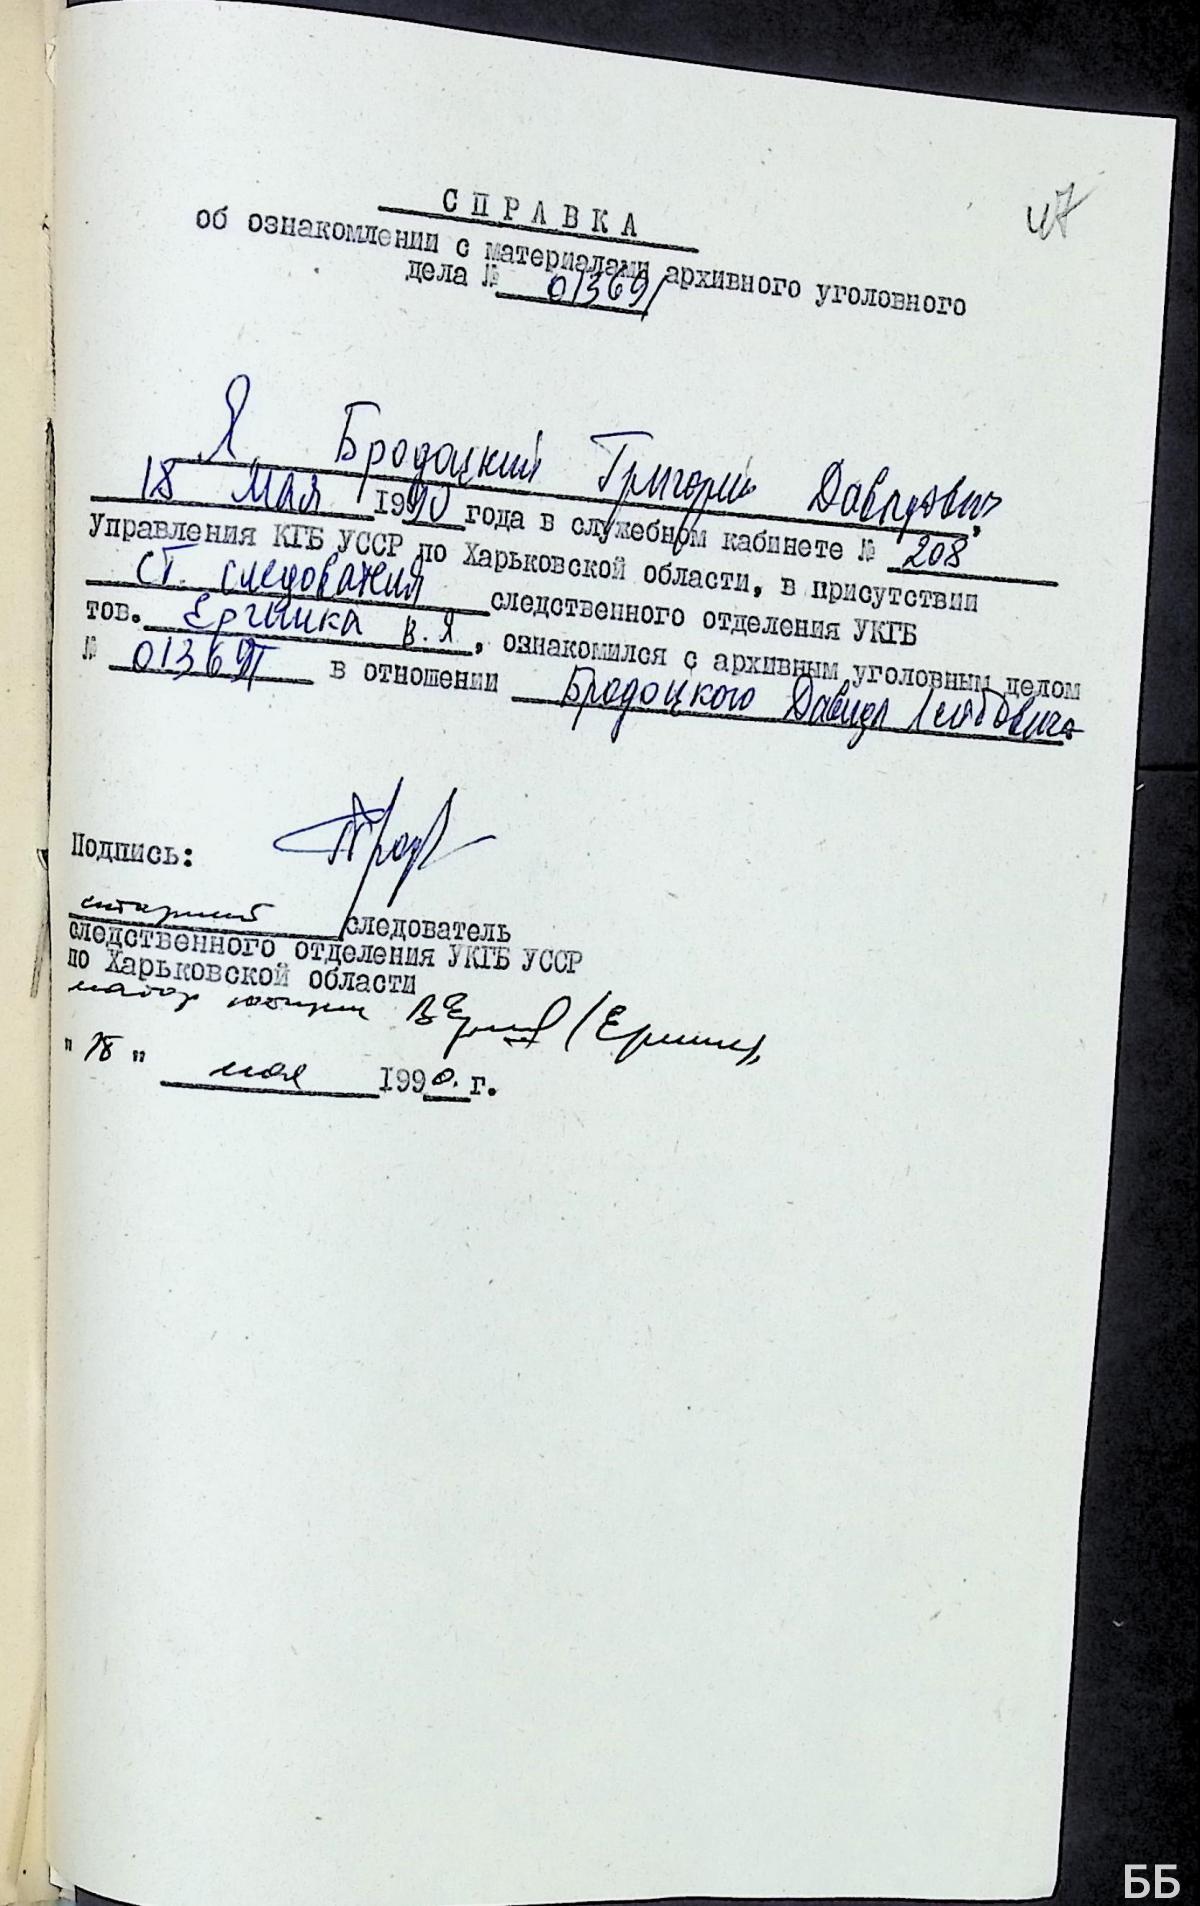 47
СПРАВКА
об ознакомлении с материалами архивного уголовного
дела № 013691
Я Бродоцкий Григорий Давидович,
18 мая 1990 года в служебном кабинете № 208
Управления КГБ УССР по Харьковской области, в присутствии
ст. следователя следственного отделения УКГБ
тов. В.Я., ознакомился с архивным уголовным делом
№ 013691 в отношении Бродоцкого Давида Лейбовича
Подпись:
старший следователь
следственного отделения УКГБ УССР
по Харьковской области
майор юстиции
"18" мая 1990 г.
ББ